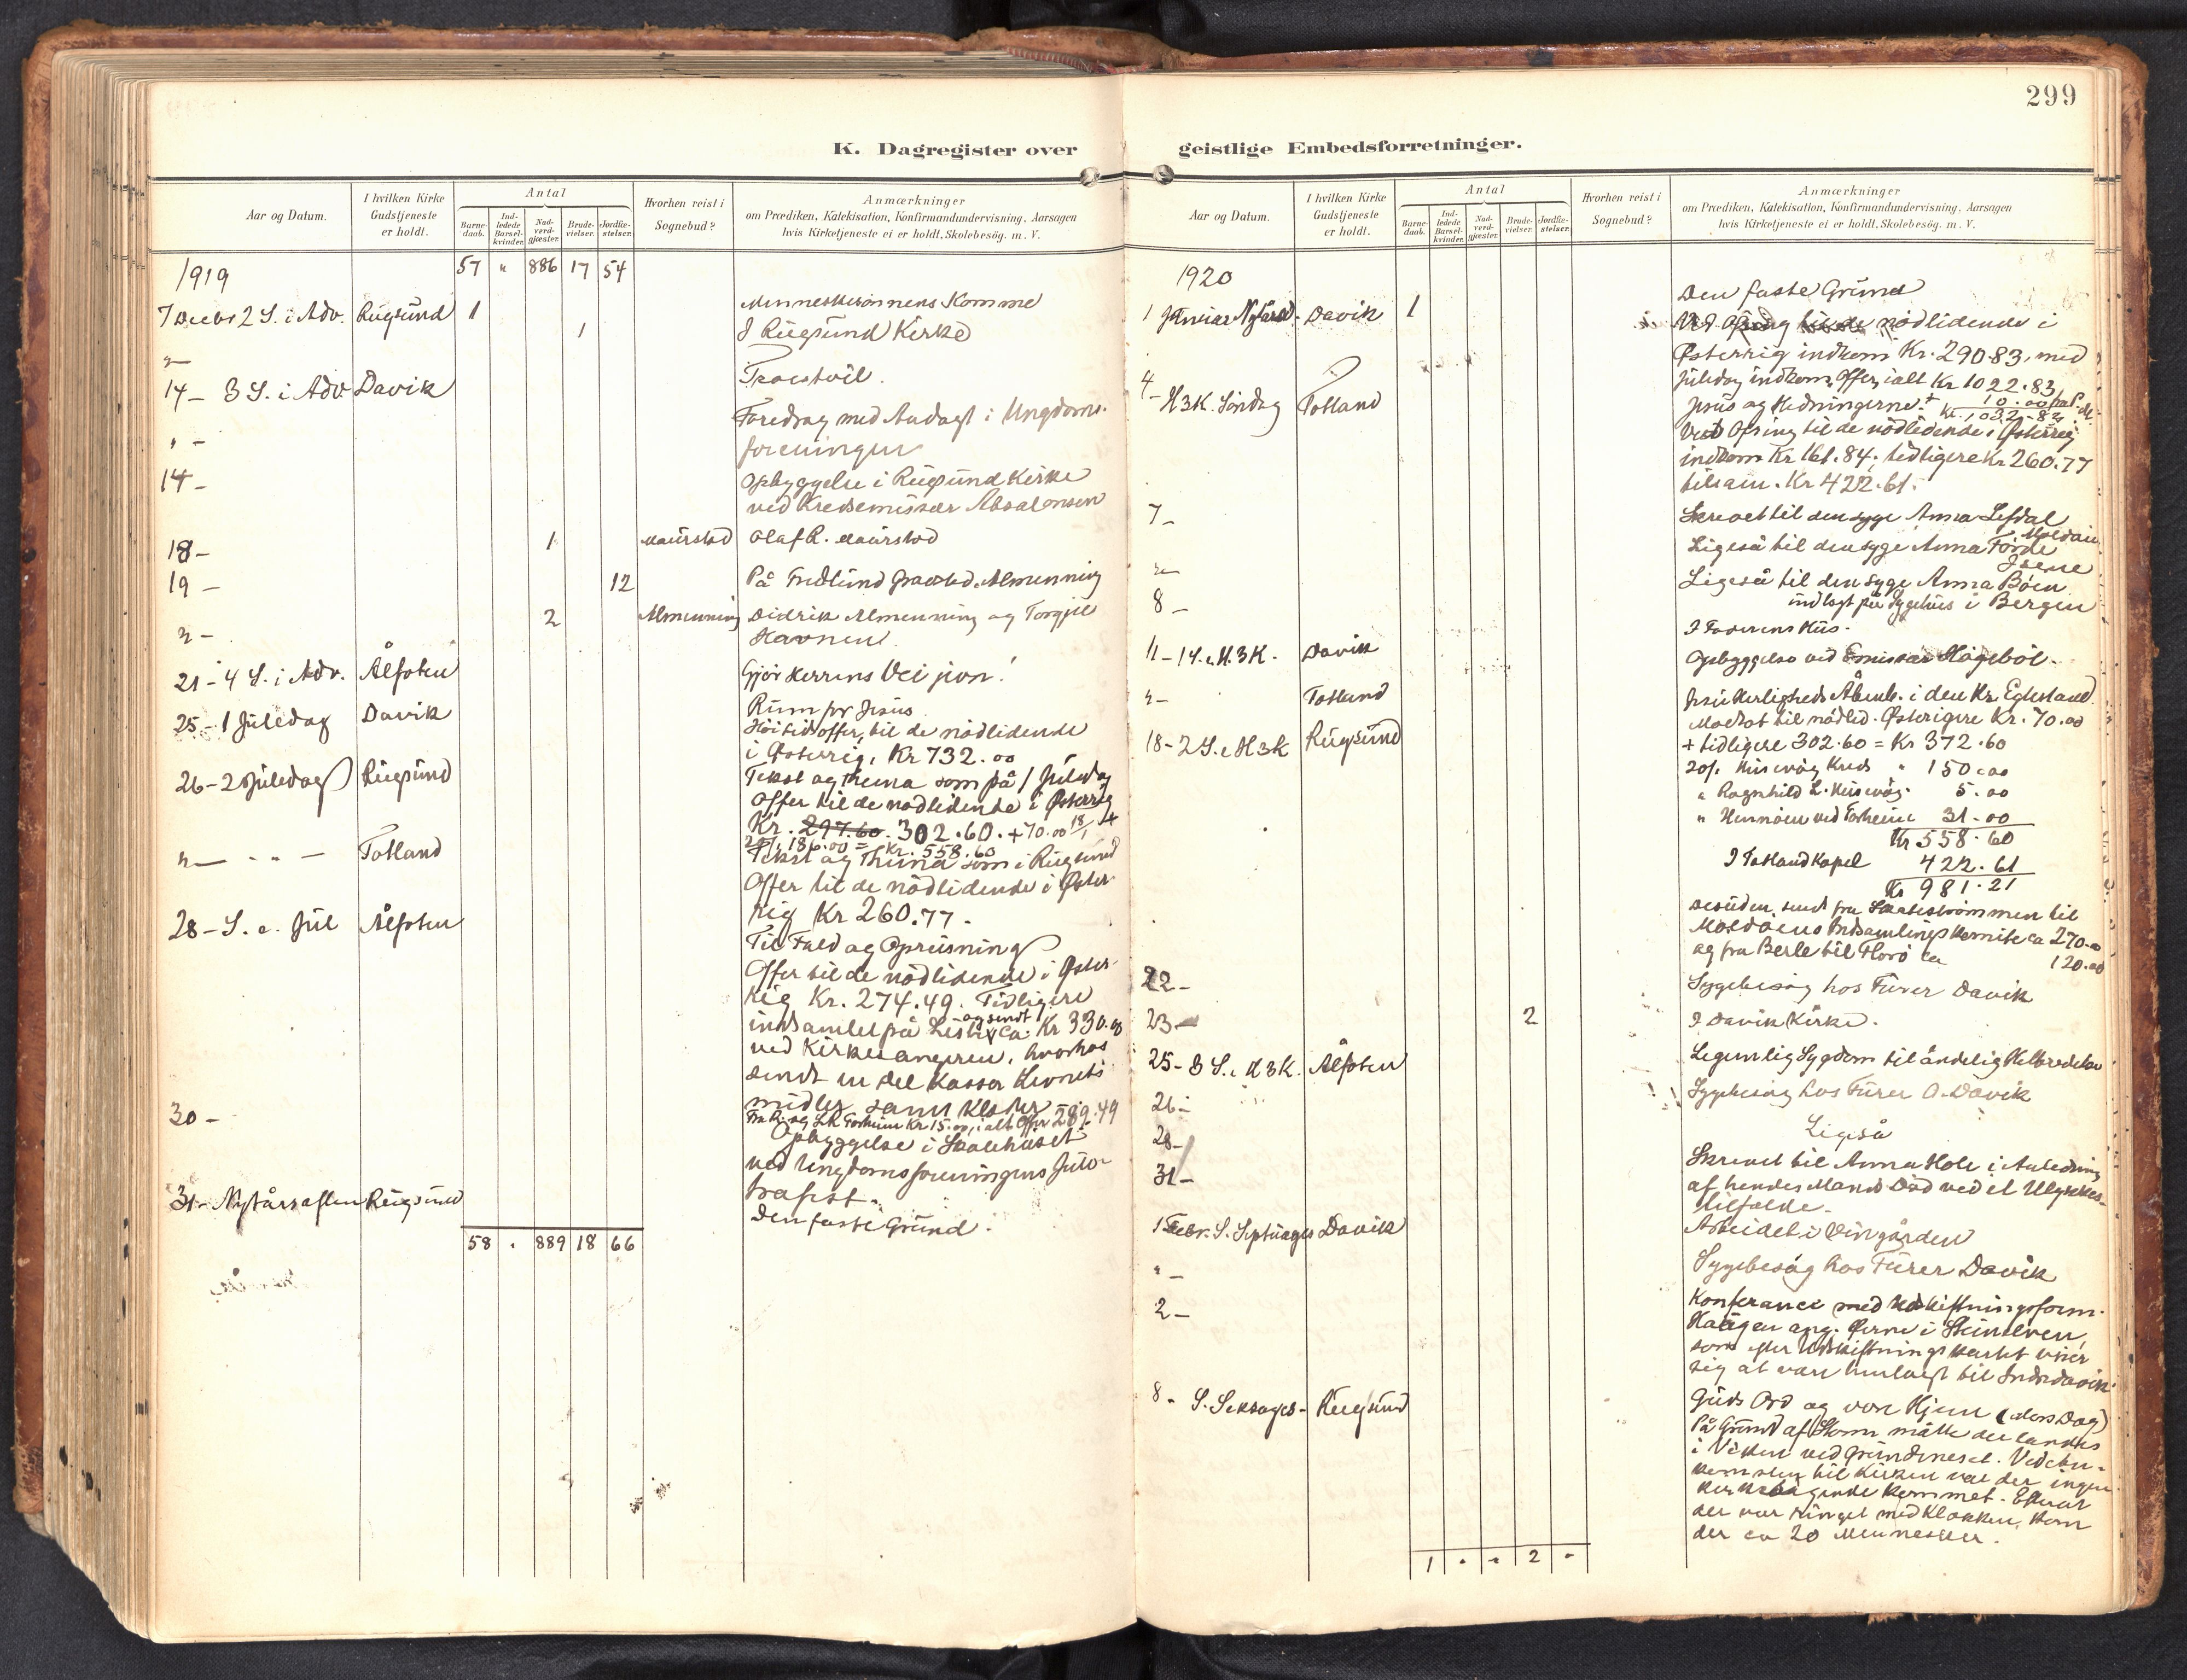 299
K. Dagregister over geistlige Embedsforretninger.
Aar og Datum.
I hvilken Kirke Gudstjeneste er holdt.
Antal
Barne-daab.
Ind-ledede Barsel-kvinder.
Nad-verd-gjæster.
Brude-vielser.
Jordfæ-stelser.
Hvorhen reist i Sognebud?
Anmærkninger
om Prædiken, Katekisation, Konfirmandundervisning. Aarsagen
hvis Kirketjeneste ei er holdt, Skolebesög. m. V.
1919 57 " 886 17 54
7 Decbr 2 S. i Adv. Rugsund 1 Menneskesønnens Komme
1 I Rugsund Kirke
"—
14 – 3 S. i Adv Davik Tvæstvil.
" – Foredrag med Andagt i Ungdoms-
foreningen
14 – Opbyggelse i Rugsund Kirke
ved Kredsemissær Absalonsen
18 – 1 Maurstad Olaf R. Maurstad
19 – 12 På Fredlund Gravsted. Almenning
" – 2 Almenning Didrik Almenning og Torgjil
Havnen.
21 – 4 S. i Adv. Ålfoten Gjør Herrens Vei jevn!
25 – 1 Juledag Davik Rum for Jesus
Høitidsoffer, til de nødlidende
i Østerrig, Kr 732.00
26 – 2 Juledag Rugsund Tekst og Thema som på 1 Juledag
Offer til de nødlidende i Østerrig
Kr. 297.60. 302.60. + 70.00 18/1 +
20/1 186.00 = Kr. 558.60
"— " " — Totland Tekst og Thema som i Rugsund
Offer til de nødlidende i Øster-
rig Kr 260.77.
28 – S. e. Jul Ålfoten Til Fald og Opreisning
Offer til de nødlidende i Øster-
rig Kr. 274.49. Tidligere
indsamlet på Liste og sendt ca. Kr 330.00
ved Kirkesangeren, hvorhos
sendt en Del Kasser Levnets
midler samt Klæder
Kr 15.00, i alt Offer 289.49
30 – Opbyggelse i Skolehuset
ved Ungdomsforeningens Jule-
træfest.
31 – Nytårsaften Rugsund Den faste Grund.
58 . 889 18 66
Aar og Datum.
I hvilken Kirke Gudstjeneste er holdt.
Antal
Barne-daab.
Ind-ledede Barsel-kvinder.
Nad-verd-gjæster.
Brude-vielser.
Jordfæ-stelser.
Hvorhen reist i Sognebud?
Anmærkninger
om Prædiken, Katekisation, Konfirmandundervisning. Aarsagen
hvis Kirketjeneste ei er holdt, Skolebesög. m. V.
1920
1 Januar Nytårsd. Davik 1 Den faste Grund
Ved Ofring til de nødlidende i
Østerrig indkom Kr. 290.83, med
Juledag indkom. Offer, ialt Kr 1022.83
+ 10.00
Kr. 1032.83
4 – H3K. Søndag Totland Jesus og Hedningerne.
Ved Ofring til de nødlidende i Østerrig
indkom Kr 161.84, tidligere Kr 260.77
tilsam. Kr 422.61.
7 – Skrevet til den syge Anna Lefdal
Ligeså til den syge Anna Førde
"— Ligeså til den syge Anna Bøen
indlagt på Sygehus i Bergen
8 –
11 – 1 S. e. H.3K. Davik I Faderens Hus.
"– Totland Opbyggelse ved Emissær Hageböl.
18 – 2 S. e H3K Rugsund Jesu Herligheds Åbenb. i den Kr. Eglestand
Modtat til nødlid. Østerrigere Kr. 70.00
+ tidligere 302.60 = Kr 372.60
20/1 Husevåg Kreds " 150.00
" Ragnhild L. Husevåg 5.00
" ved Torheim 31.00
Kr 558.60
I Totland Kapel 422.61
Kr 981.21
Desuden sendt fra Skatestrømmen til
Moldøens Indsamlingskomite ca 270.00
og fra Berle til Florø ca 120.00
22 – Sygebesøg hos Fürer Davik
23 – 2 I Davik Kirke.
25 – 3 S. e H3K. Ålfoten Legemlig Sygdom til åndelig Helbredelse
26 – Sygebesøg hos Fürer O. Davik
28 – Ligeså
31 – Skrevet til Anna Hole i Anledning
af hendes Mands Død ved et Ulykkes-
tilfælde.
1 Febr. S. Septuages Davik Arbeidet i Vingården
" – Sygebesøg hos Fürer Davik
2 – Konferance med Udskiftningsform.
Haugen ang. Øerne i
som efter Udskiftningskartet viser
sig at være henlagt til Indredavik.
8 – S. Seksages – Rugsund Guds Ord og vore Hjem (    Dag)
På Grund af Storm måtte der landes
i Viken ved Grundeneset. Ved An-
komsten til Kirken var der ingen
kirkesøgende kommet. Efterat
der var ringet med Klokken, kom
der ca 20 Mennesker.
1 " " 2 "